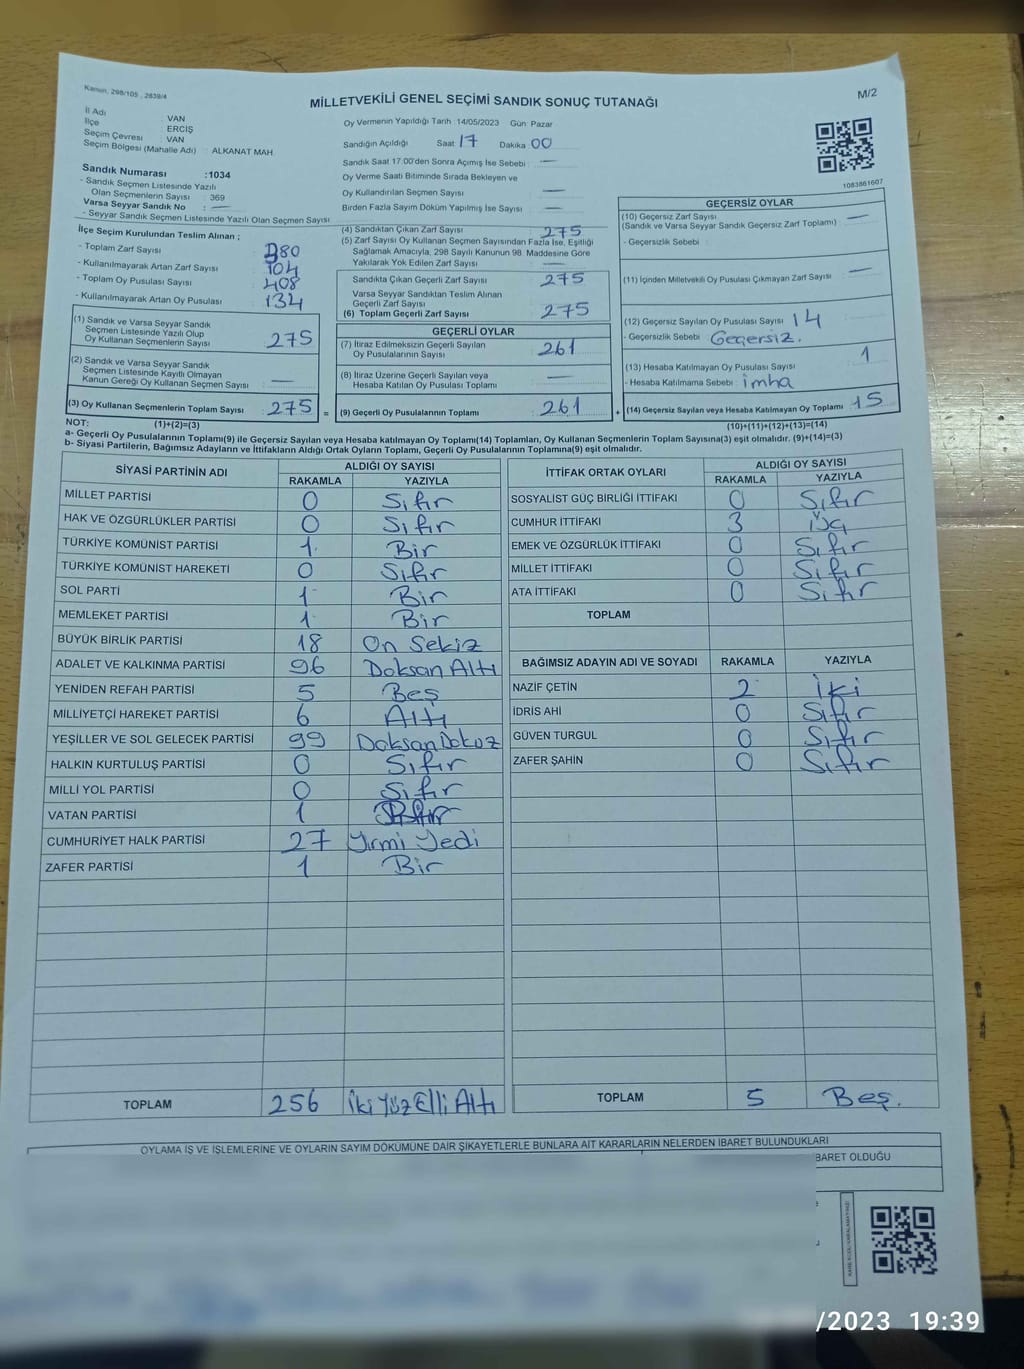 Kanun, 298/105 , 2839/4
M/2
MİLLETVEKİLİ GENEL SEÇİMİ SANDIK SONUÇ TUTANAĞI
İl Adı : VAN
İlçe : ERCİŞ
Seçim Çevresi : VAN
Seçim Bölgesi (Mahalle Adı) : ALKANAT MAH.
Sandık Numarası :1034
- Sandık Seçmen Listesinde Yazılı
Olan Seçmenlerin Sayısı : 369
Varsa Seyyar Sandık No : —
- Seyyar Sandık Seçmen Listesinde Yazılı Olan Seçmen Sayısı:
Oy Vermenin Yapıldığı Tarih 14/05/2023 Gün Pazar
Sandığın Açıldığı Saat 17 Dakika 00
Sandık Saat 17.00'den Sonra Açımış İse Sebebi —
Oy Verme Saati Bitiminde Sırada Bekleyen ve
Oy Kullandırılan Seçmen Sayısı —
Birden Fazla Sayım Döküm Yapılmış İse Sayısı —
1083861607
İlçe Seçim Kurulundan Teslim Alınan ;
- Toplam Zarf Sayısı : 380
- Kullanılmayarak Artan Zarf Sayısı : 104
- Toplam Oy Pusulası Sayısı : 408
- Kullanılmayarak Artan Oy Pusulası : 134
(1) Sandık ve Varsa Seyyar Sandık
Seçmen Listesinde Yazılı Olup
Oy Kullanan Seçmenlerin Sayısı : 275
(2) Sandık ve Varsa Seyyar Sandık
Seçmen Listesinde Kayıtlı Olmayan
Kanun Gereği Oy Kullanan Seçmen Sayısı : —
(3) Oy Kullanan Seçmenlerin Toplam Sayısı : 275 =
(4) Sandıktan Çıkan Zarf Sayısı : 275
(5) Zarf Sayısı Oy Kullanan Seçmen Sayısından Fazla İse, Eşitliği
Sağlamak Amacıyla, 298 Sayılı Kanunun 98. Maddesine Göre
Yakılarak Yok Edilen Zarf Sayısı : —
Sandıkta Çıkan Geçerli Zarf Sayısı : 275
Varsa Seyyar Sandıktan Teslim Alınan
Geçerli Zarf Sayısı
(6) Toplam Geçerli Zarf Sayısı : 275
GEÇERLİ OYLAR
(7) İtiraz Edilmeksizin Geçerli Sayılan
Oy Pusulalarının Sayısı : 261
(8) İtiraz Üzerine Geçerli Sayılan veya
Hesaba Katılan Oy Pusulası Toplamı : —
(9) Geçerli Oy Pusulalarının Toplamı : 261 +
GEÇERSİZ OYLAR
(10) Geçersiz Zarf Sayısı : —
(Sandık ve Varsa Seyyar Sandık Geçersiz Zarf Toplamı)
- Geçersizlik Sebebi :
(11) İçinden Milletvekili Oy Pusulası Çıkmayan Zarf Sayısı : —
(12) Geçersiz Sayılan Oy Pusulası Sayısı : 14
- Geçersizlik Sebebi : Geçersiz.
(13) Hesaba Katılmayan Oy Pusulası Sayısı : 1
- Hesaba Katılmama Sebebi : imha
(14) Geçersiz Sayılan veya Hesaba Katılmayan Oy Toplamı : 15
NOT: (1)+(2)=(3)
(10)+(11)+(12)+(13)=(14)
a- Geçerli Oy Pusulalarının Toplamı(9) ile Geçersiz Sayılan veya Hesaba katılmayan Oy Toplamı(14) Toplamları, Oy Kullanan Seçmenlerin Toplam Sayısına(3) eşit olmalıdır. (9)+(14)=(3)
b- Siyasi Partilerin, Bağımsız Adayların ve İttifakların Aldığı Ortak Oyların Toplamı, Geçerli Oy Pusulalarının Toplamına(9) eşit olmalıdır.
SİYASİ PARTİNİN ADI ALDIĞI OY SAYISI
RAKAMLA YAZIYLA
MİLLET PARTİSİ 0 Sıfır
HAK VE ÖZGÜRLÜKLER PARTİSİ 0 Sıfır
TÜRKİYE KOMÜNİST PARTİSİ 1 Bir
TÜRKİYE KOMÜNİST HAREKETİ 0 Sıfır
SOL PARTİ 1 Bir
MEMLEKET PARTİSİ 1 Bir
BÜYÜK BİRLİK PARTİSİ 18 On Sekiz
ADALET VE KALKINMA PARTİSİ 96 Doksan Altı
YENİDEN REFAH PARTİSİ 5 Beş
MİLLİYETÇİ HAREKET PARTİSİ 6 Altı
YEŞİLLER VE SOL GELECEK PARTİSİ 99 Doksan Dokuz
HALKIN KURTULUŞ PARTİSİ 0 Sıfır
MİLLİ YOL PARTİSİ 0 Sıfır
VATAN PARTİSİ 1
CUMHURİYET HALK PARTİSİ 27 Yirmi Yedi
ZAFER PARTİSİ 1 Bir
TOPLAM 256 İki Yüz Elli Altı
İTTİFAK ORTAK OYLARI ALDIĞI OY SAYISI
RAKAMLA YAZIYLA
SOSYALİST GÜÇ BİRLİĞİ İTTİFAKI 0 Sıfır
CUMHUR İTTİFAKI 3 Üç
EMEK VE ÖZGÜRLÜK İTTİFAKI 0 Sıfır
MİLLET İTTİFAKI 0 Sıfır
ATA İTTİFAKI 0 Sıfır
TOPLAM
BAĞIMSIZ ADAYIN ADI VE SOYADI RAKAMLA YAZIYLA
NAZİF ÇETİN 2 İki
İDRİS AHİ 0 Sıfır
GÜVEN TURGUL 0 Sıfır
ZAFER ŞAHİN 0 Sıfır
TOPLAM 5 Beş.
OYLAMA İŞ VE İŞLEMLERİNE VE OYLARIN SAYIM DÖKÜMÜNE DAİR ŞİKAYETLERLE BUNLARA AİT KARARLARIN NELERDEN İBARET BULUNDUKLARI
BARET OLDUĞU
/2023 19:39